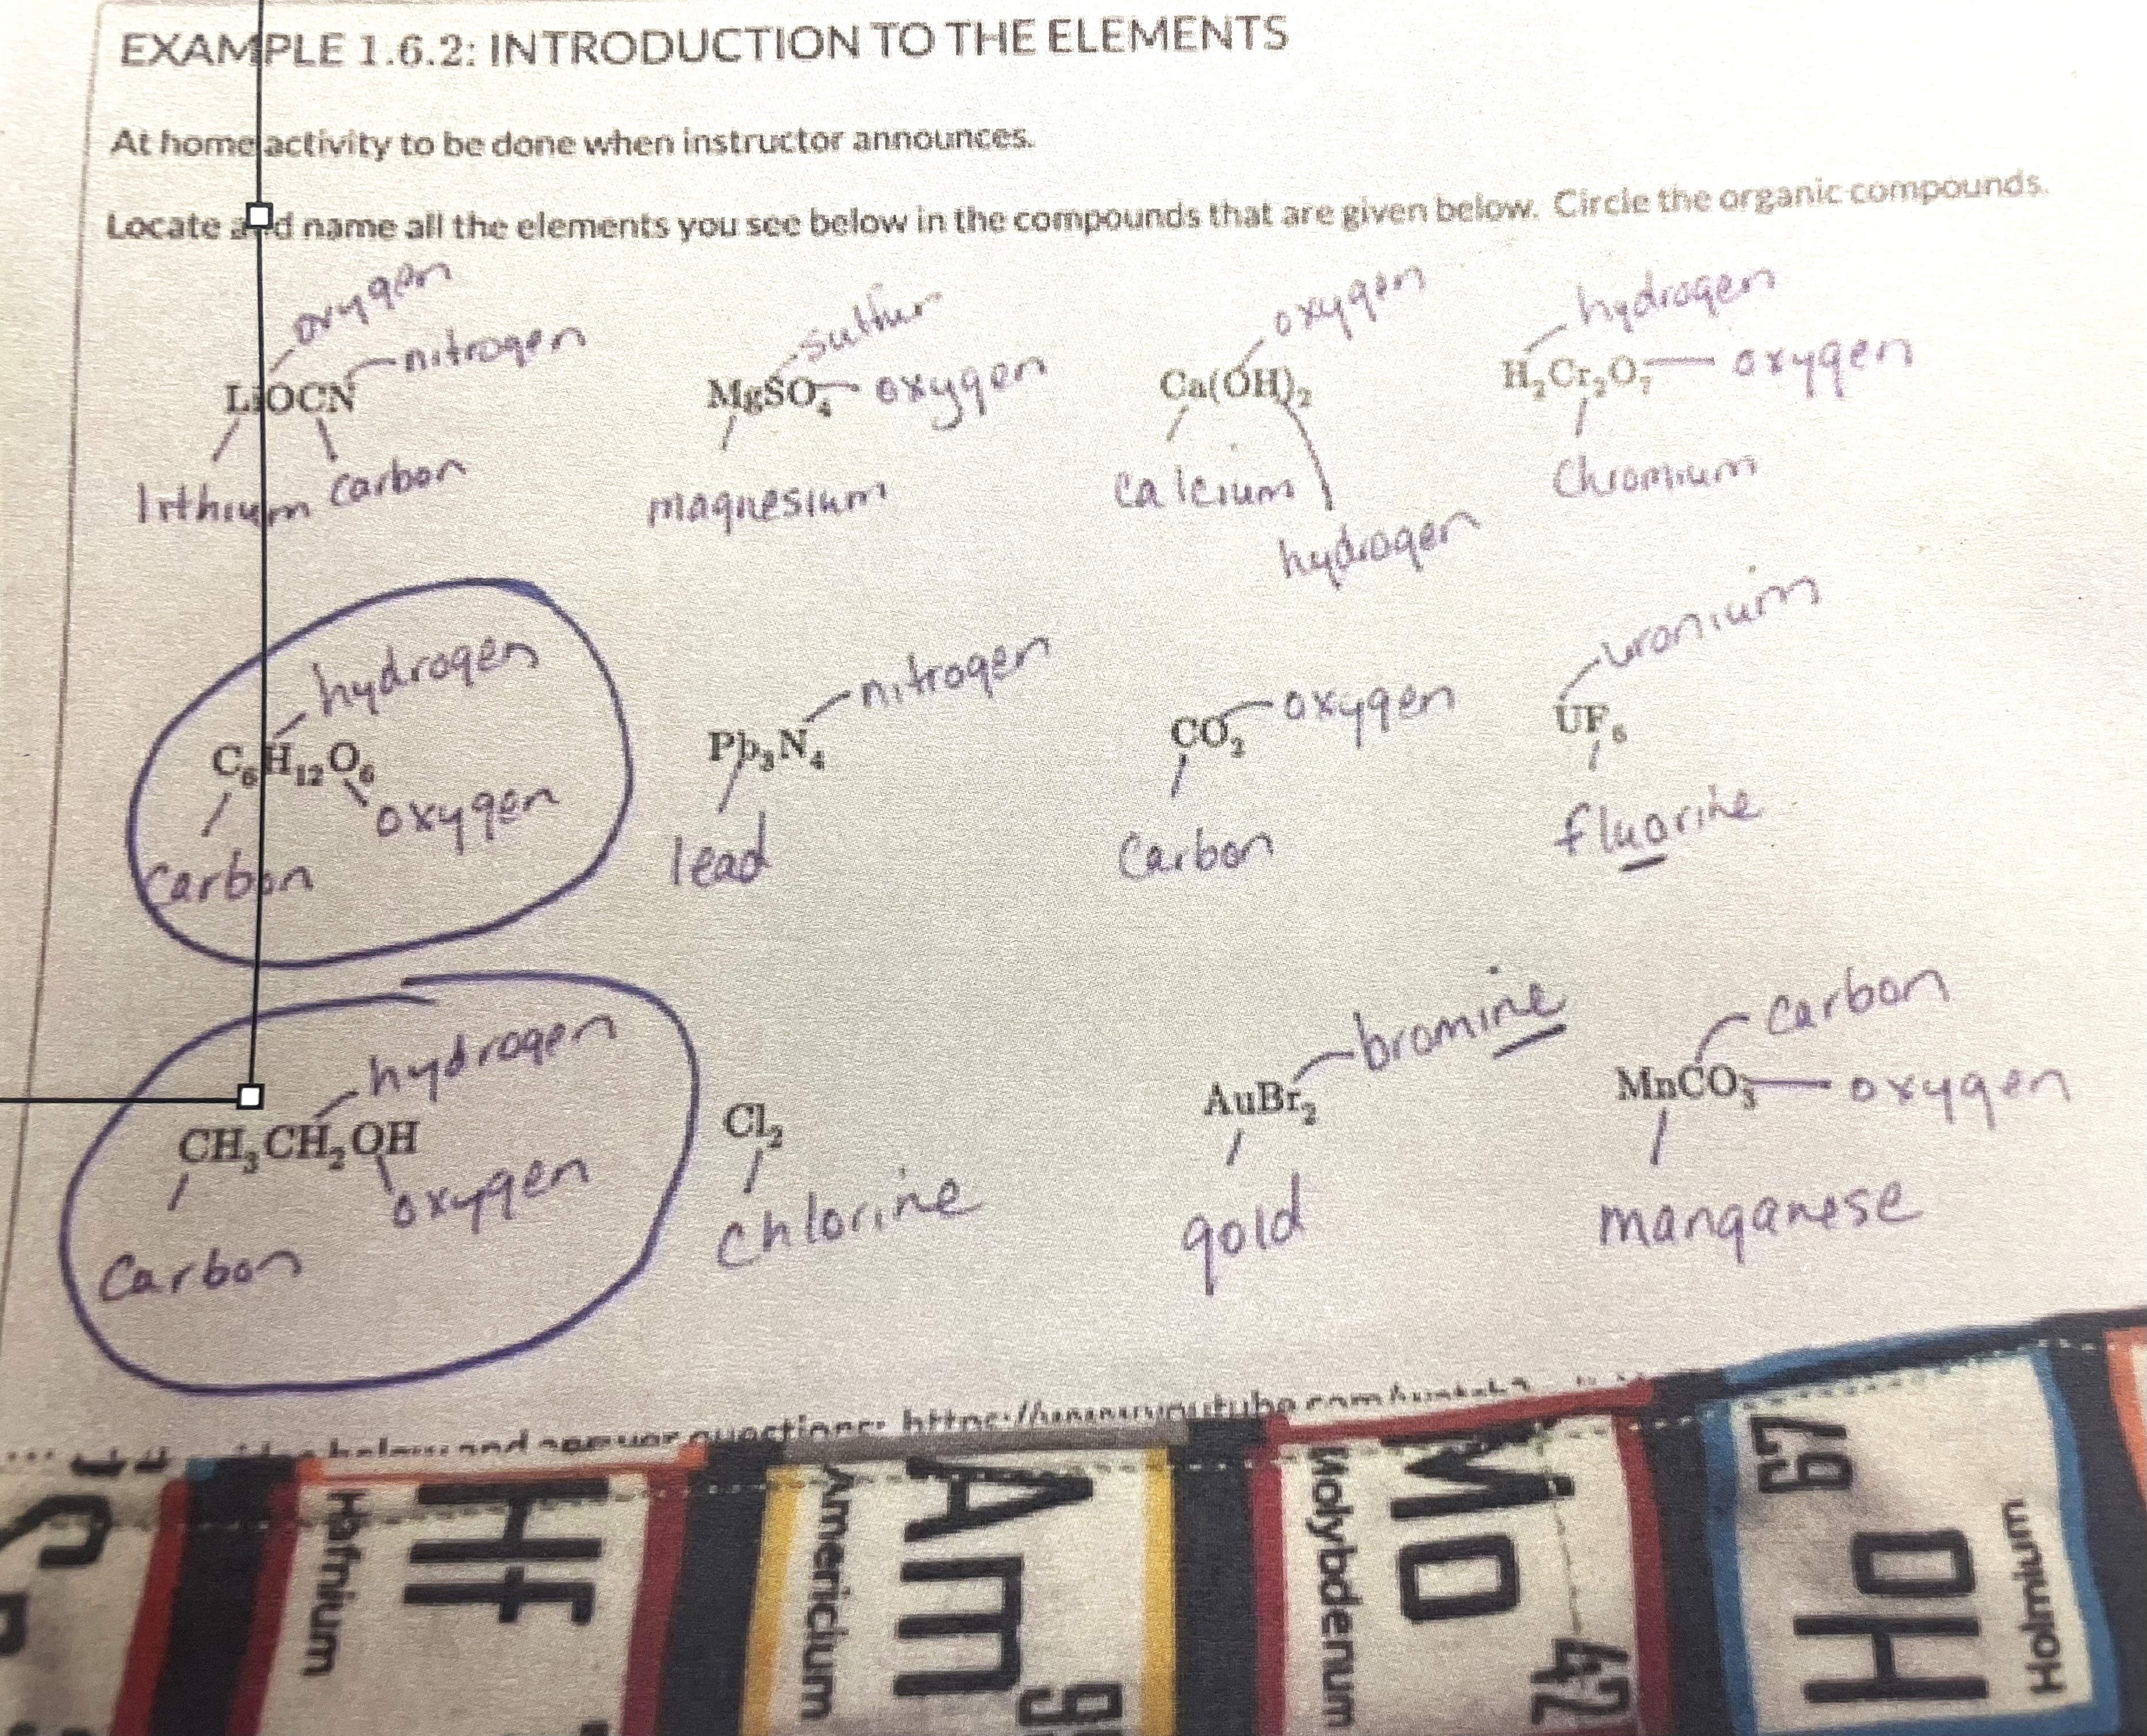 EXAMPLE 1.6.2: INTRODUCTION TO THE ELEMENTS
At home activity to be done when instructor announces.
Locate and name all the elements you see below in the compounds that are given below. Circle the organic compounds.
oxygen
nitrogen
LiOCN
lithium carbon
sulfur
MgSO₄ oxygen
magnesium
oxygen
Ca(OH)₂
calcium
hydrogen
hydrogen
H₂Cr₂O₇ oxygen
Chromium
hydrogen
C₆H₁₂O₆
oxygen
Carbon
nitrogen
Pb₃N₄
lead
CO₂ oxygen
Carbon
uranium
UF₆
fluorine
hydrogen
CH₃CH₂OH
oxygen
Carbon
Cl₂
chlorine
bromine
AuBr₂
gold
carbon
MnCO₃ oxygen
manganese
below and
Hf
Hafnium
Am
Americium
Mo
Molybdenum
42
67
Ho
Holmium